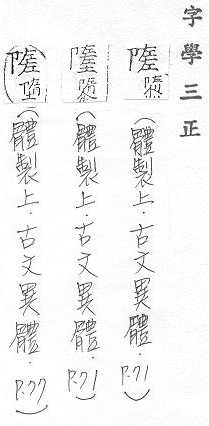 字學三正
（體製上．古文異體．P.71）
（體製上．古文異體．P.71）
（體製上．古文異體．P.77）